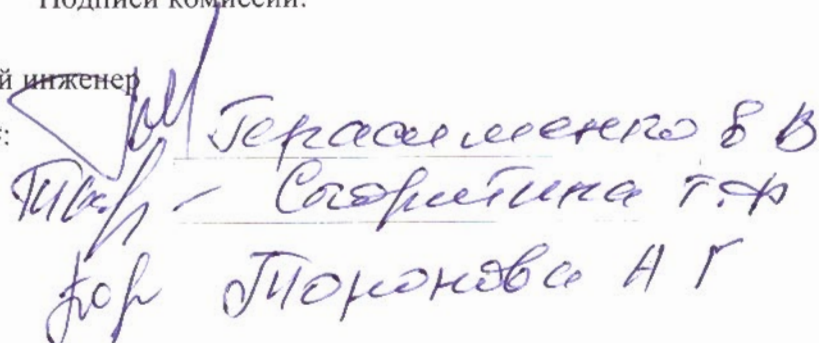 Подписи комиссии:
й инженер
:
Герасименко В В
Т.Ф
Торонова А Г